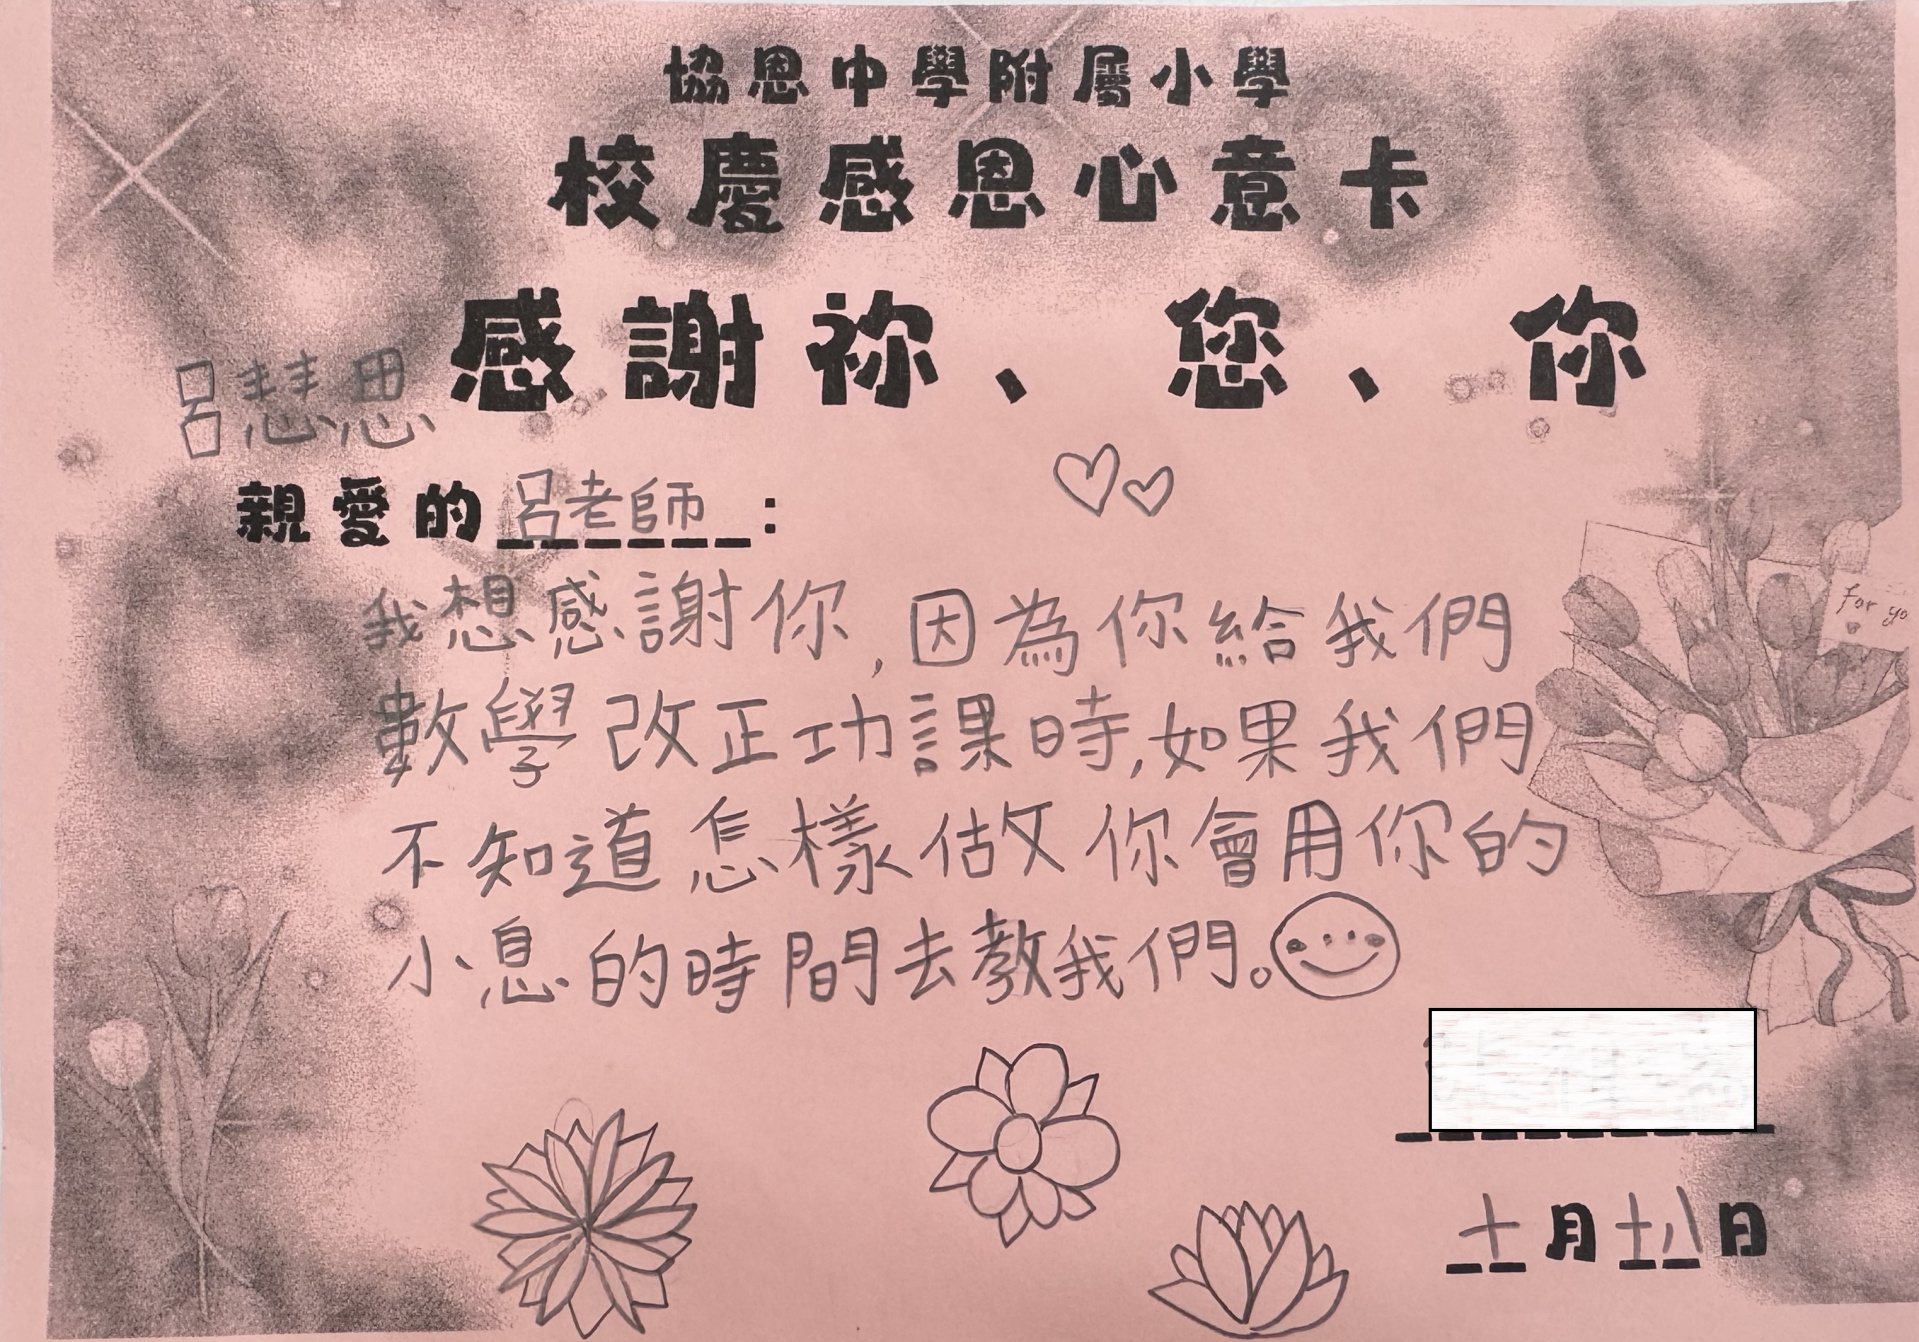 協恩中學附屬小學
校慶感恩心意卡
感謝祢、您、你
呂慧思
親愛的呂老師：
我想感謝你，因為你給我們
數學改正功課時，如果我們
不知道怎樣做你會用你的
小息的時間去教我們。
十月十八日
for yo